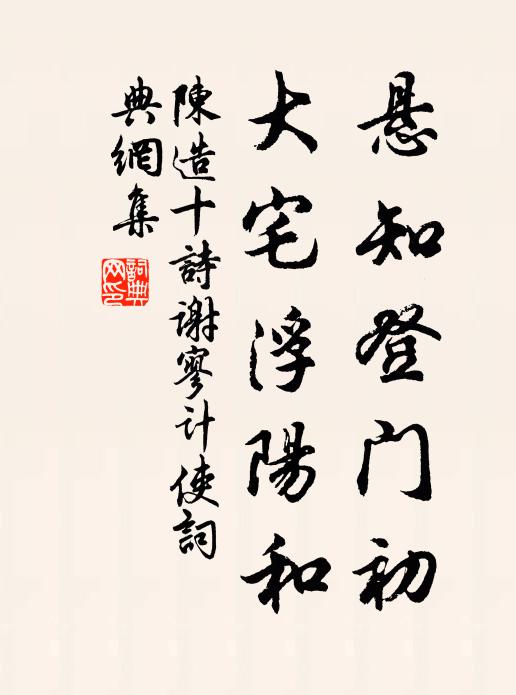 悬知登门初
大宅浮陽和
陳造十詩謝寥计使詞
典網集
詞典
网印